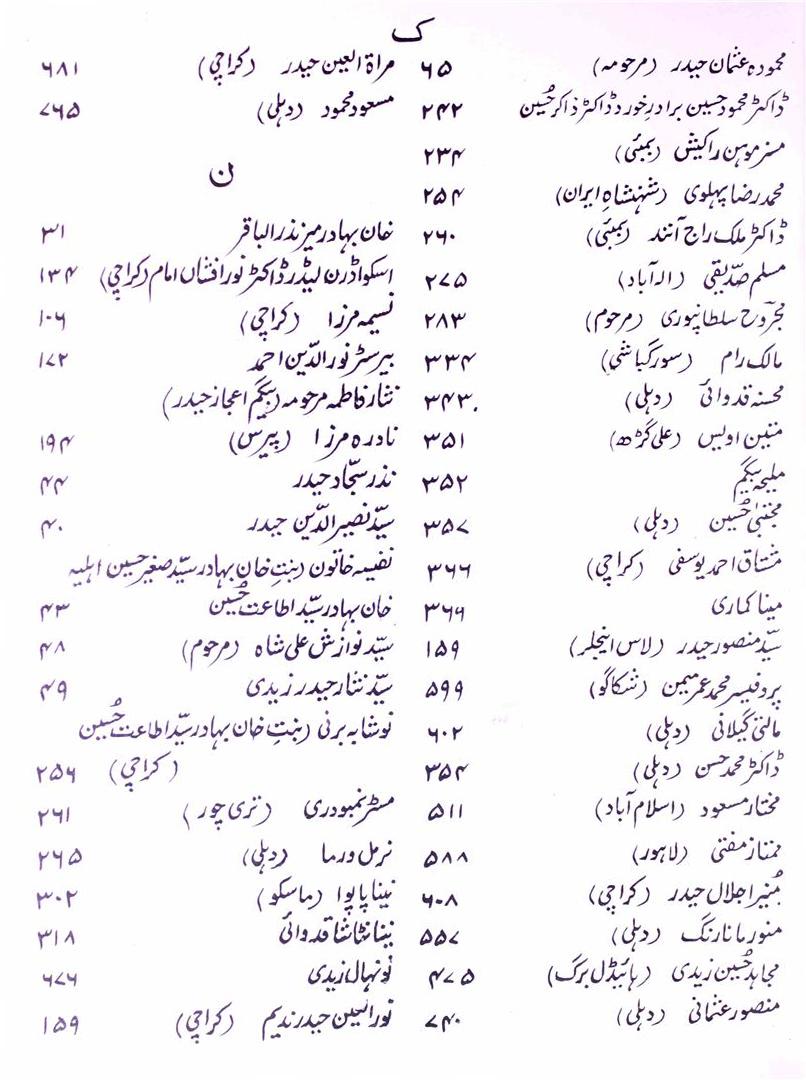 ک
محمودہ عثمان حیدر (مرحومہ) ۶۵
ڈاکٹر محمود حسین برادرِ خورد ڈاکٹر ذاکر حُسین ۲۴۲
مسز موہن راکیش (بمبئی) ۲۳۴
محمد رضا پہلوی (شہنشاہِ ایران) ۲۵۴
ڈاکٹر ملک راج آنند (بمبئی) ۲۶۰
مسلم صدّیقی (الہ آباد) ۲۷۵
مجرُوح سلطانپوری (مرحوم) ۲۸۳
مالک رام (سورگباشی) ۳۳۴
محسنہ قدوائی (دہلی) ۳۴۳
متین اویس (علی گڑھ) ۳۵۱
ملیحہ بیگم ۳۵۲
مجتبیٰ حُسین (دہلی) ۳۵۷
مشتاق احمد یوسفی (کراچی) ۳۶۶
مینا کماری ۳۶۹
سیّد منصور حیدر (لاس اینجلر) ۱۵۹
پروفیسر محمد عمر میمن (شکاگو) ۵۹۹
مالتی گیلانی (دہلی) ۶۰۲
ڈاکٹر محمد حسن (دہلی) ۳۵۴
مختار مسعود (اسلام آباد) ۵۱۱
ممتاز مفتی (لاہور) ۵۸۸
مُنیر اجلال حیدر (کراچی) ۶۰۸
منورما نارنگ (دہلی) ۵۵۷
مجاہد حُسین زیدی (ہائیڈل برگ) ۴۷۵
منصور عثمانی (دہلی) ۷۴۰
مراۃ العین حیدر (کراچی) ۶۸۱
مسعود محمود (دہلی) ۷۶۵
ن
خان بہادر میر نذر الباقر ۳۱
اسکواڈرن لیڈر ڈاکٹر نور افشاں امام (کراچی) ۱۳۴
نسیمہ مرزا (کراچی) ۱۰۶
بیرسٹر نور الدّین احمد ۱۷۲
نثار فاطمہ مرحومہ (بیگم اعجاز حیدر)
نادرہ مرزا (پیرس) ۱۹۴
نذر سجّاد حیدر ۴۴
سیّد نصیر الدّین حیدر ۴۰
نفیسہ خاتون (بنتِ خان بہادر سیّد صغیر حسین اہلیہ
خان بہادر سیّد اطاعت حُسین ۴۳
سیّد نوازش علی شاہ (مرحوم) ۴۸
سیّد نثار حیدر زیدی ۴۹
نوشابہ برنی (بنتِ خان بہادر سیّد اطاعت حُسین
(کراچی) ۲۵۶
مسٹر نمبودری (تری چور) ۲۶۱
نرمل ورما (دہلی) ۲۶۵
نینا پاپوا (ماسکو) ۳۰۲
نینا نتاشا قدوائی ۳۱۸
نونہال زیدی ۶۷۶
نور العین حیدر ندیم (کراچی) ۱۵۹